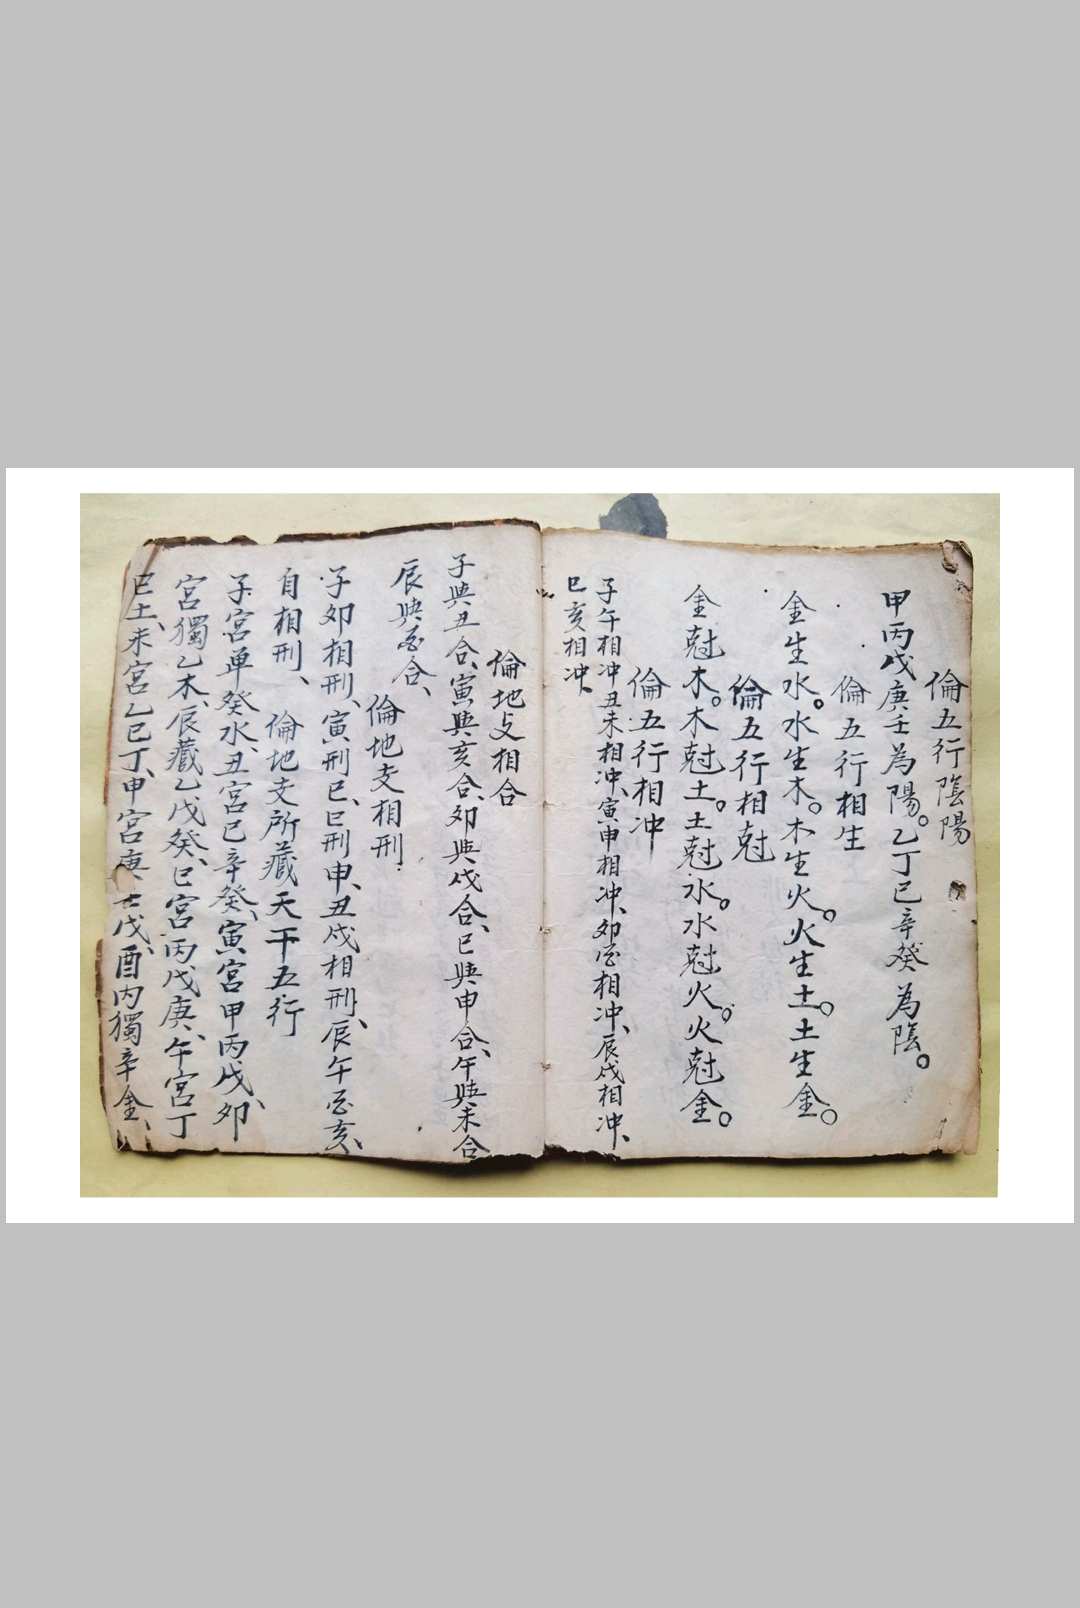 倫五行陰陽
甲丙戊庚壬為陽。乙丁己辛癸為陰。
倫五行相生
金生水。水生木。木生火。火生土。土生金。
倫五行相尅
金尅木。木尅土。土尅水。水尅火。火尅金。
倫五行相冲
子午相冲、丑未相冲、寅申相冲、卯酉相冲、辰戌相冲、
巳亥相冲、
倫地支相合
子與丑合、寅與亥合、卯與戌合、巳與申合、午與未合
辰與酉合、
倫地支相刑
子卯相刑、寅刑巳、巳刑申、丑戌相刑、辰午酉亥、
自相刑、
倫地支所藏天干五行
子宮单癸水、丑宮己辛癸、寅宮甲丙戊、卯
宮獨乙木、辰藏乙戊癸、巳宮丙戊庚、午宮丁
己土、未宮乙己丁、申宮庚壬戊、酉内獨辛金、